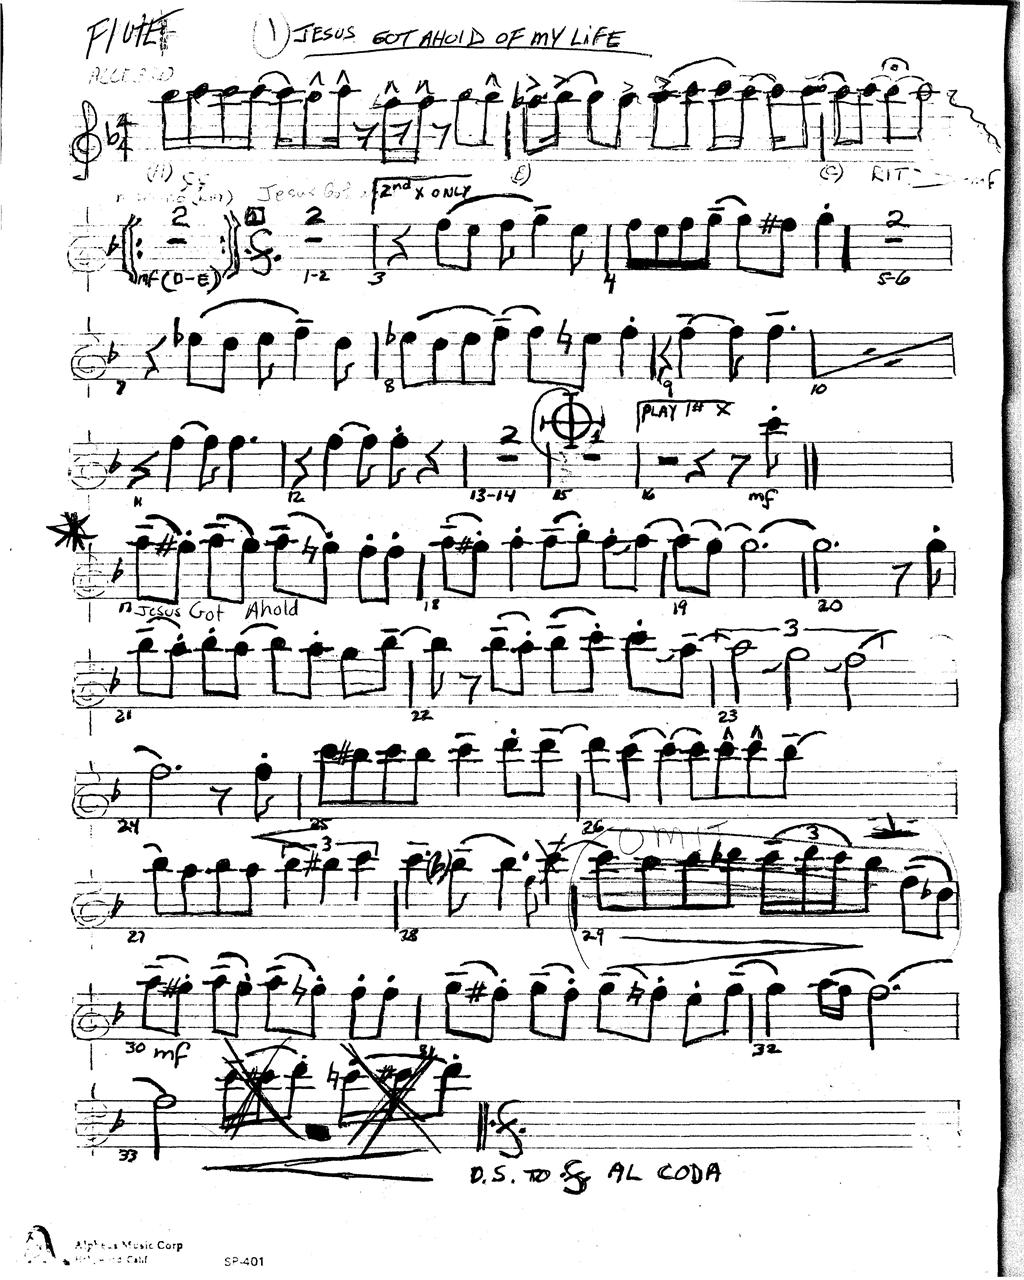 FLUTE
① JESUS GOT AHOLD OF MY LIFE
(A) (E) (G) RIT mf
Jesus Got
2nd X ONLY
2 A 2 2
mf (D-E) 1-2 3 4 5-6
7 8 9 10
PLAY 1st X
2 1
11 12 13-14 15 16 mf
17 Jesus Got Ahold 18 19 20
3
21 22 23
24 25 26
OMIT
3 3
27 28 29
30 mf 31 32
33
D.S. TO 𝄋 AL CODA
Alpheus Music Corp
Hollywood Calif
SP-401